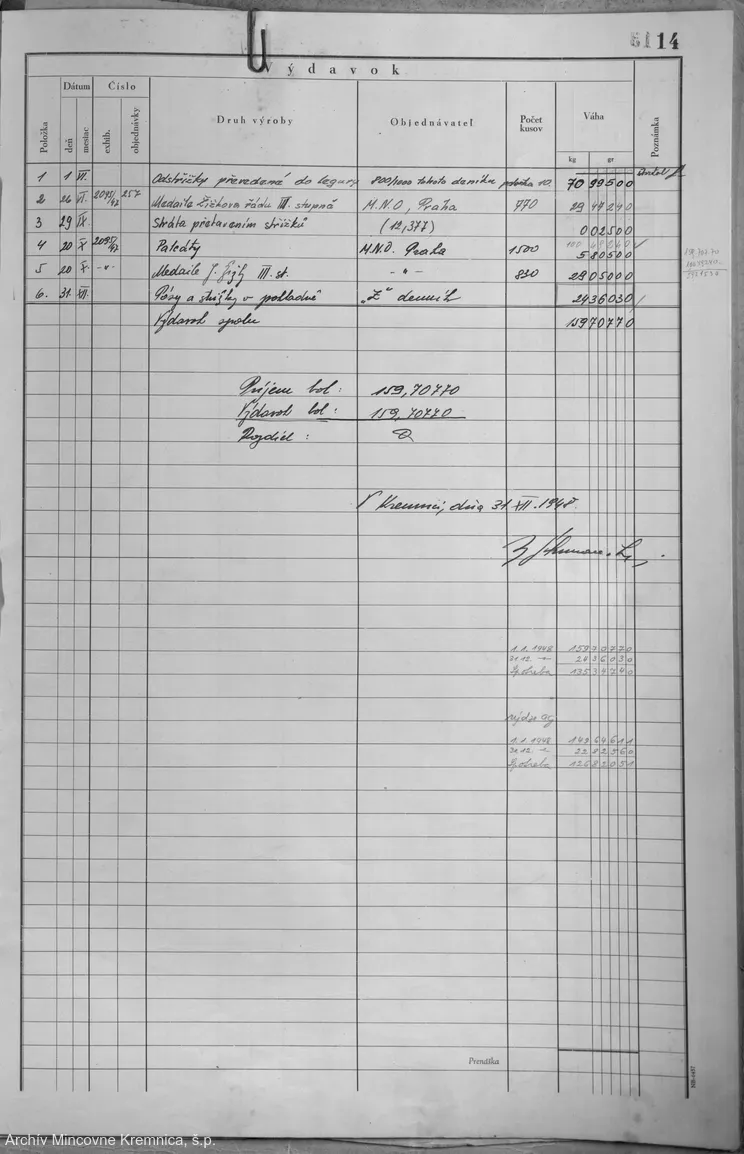 14
Výdavok
Položka
Dátum
deň
mesiac
Číslo
exhib.
objednávky
Druh výroby
Objednávateľ
Počet kusov
Váha
kg
gr
Poznámka
1 1 VII. Odstřižky převedené do legury 800/1000 tohoto deníku položka 10. 70 99500
2 26 VI. 2095/47 257 Medaila Žižkova řádu III. stupně M.N.O, Praha 770 29 44240
3 29 IX. Strata přetavením střižků (12,377) 0 02500
100 48240
4 20 X 2095/47 Patenty M.N.O. Praha 1500 5 80500
5 20 X. -"- Medaile J. III. st. -"- 830 29 05000
6. 31. XII. a střižky v pokladně "Z" denník 24 36030
Výdavok spolu 159 70770
Príjem bol: 159,70770
Výdavok bol: 159,70770
Rozdiel: 0
V Kremnici, dňa 31. XII. 1948.
1.1.1948 159 70770
31.12. -"- 24 36030
Spotreba 135 34740
1.1.1948 149 64611
31.12. -"- 22 82560
Spotreba 126 82051
Prenáška
Archív Mincovne Kremnica, š.p.